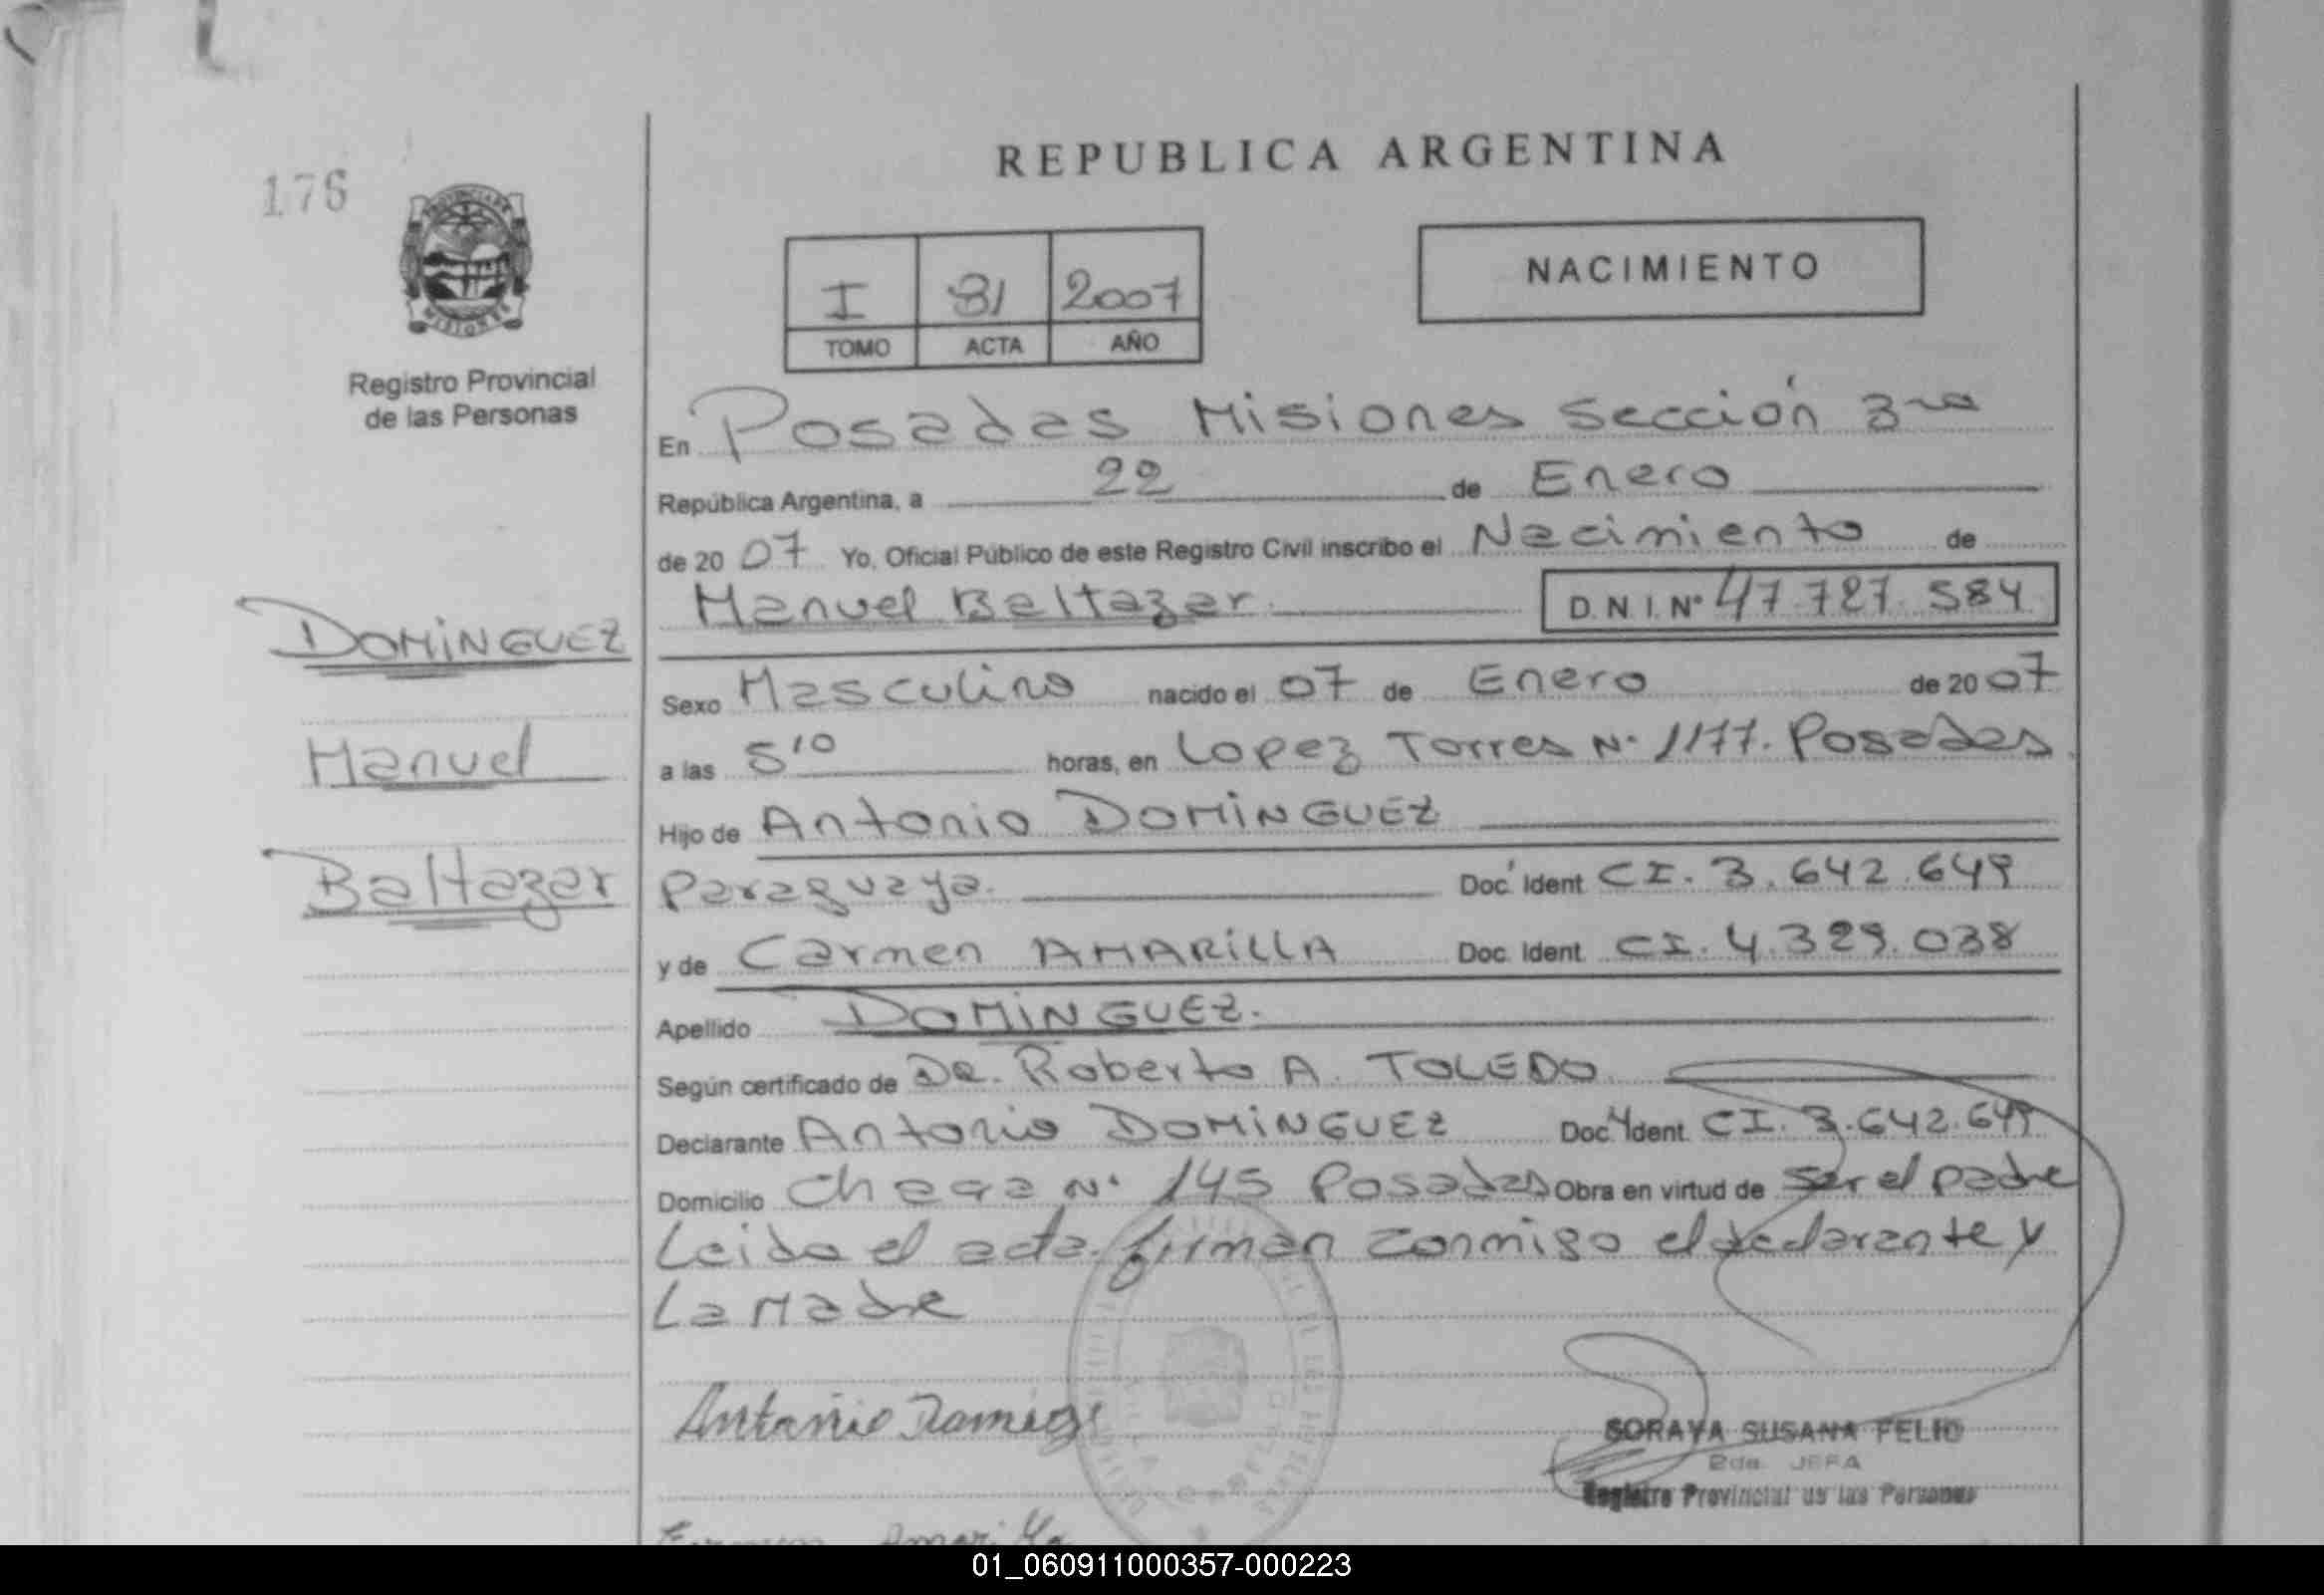 176
PROVINCIA DE
MISIONES
Registro Provincial
de las Personas
REPUBLICA ARGENTINA
I 81 2007
TOMO ACTA AÑO
NACIMIENTO
En Posadas Misiones Sección 3ra
República Argentina, a 22 de Enero
de 20 07 Yo, Oficial Público de este Registro Civil inscribo el Nacimiento de
Manuel Baltazar D.N.I. Nº 47.727.584
DOMINGUEZ
Manuel
Baltazar
Sexo Masculino nacido el 07 de Enero de 20 07
a las 5 10 horas, en Lopez Torres Nº 1177. Posadas
Hijo de Antonio DOMINGUEZ
Paraguaya. Doc. Ident CI. 3.642.649
y de Carmen AMARILLA Doc. Ident CI. 4.329.038
Apellido DOMINGUEZ.
Según certificado de DR. Roberto A. TOLEDO
Declarante Antonio DOMINGUEZ Doc. Ident. CI. 3.642.649
Domicilio Nº 145 Posadas Obra en virtud de ser el padre
Leida el acta firman conmigo el declarante y
La Madre
Antonio
SORAYA SUSANA FELIO
2da. JEFA
Registro Provincial de las Personas
01_060911000357-000223